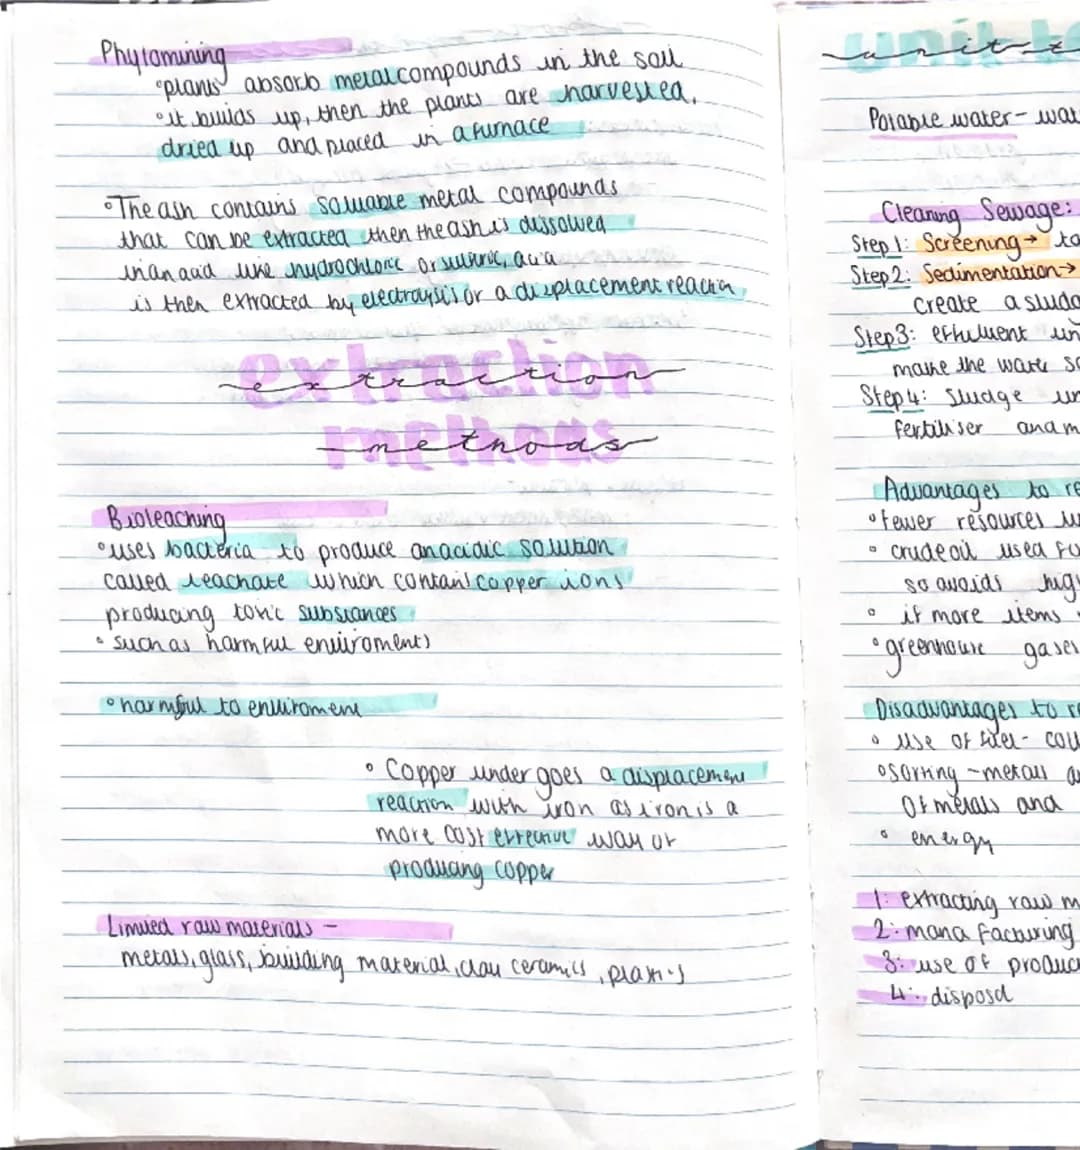 Phytomining
°plants absorb metal compounds in the soil
°it builds up, then the plants are harvested,
dried up and placed in a furnace
°The ash contains soluable metal compounds
that can be extracted then the ash is dissolved
in an acid like hydrochloric or sulfuric, acid
is then extracted by electraysis or a displacement reaction
extraction
extraction
methods
methods
Bioleaching
°uses bacteria to produce an acidic solution
called leachate which contains copper ions
producing toxic substances
° such as harmful enviroments
°harmful to enviroment
° Copper undergoes a displacement
reaction with iron as iron is a
more cost effective way of
producing copper
Limited raw materials –
metals, glass, building material, clay ceramics,
unit
unit
Potable water – wat
Cleaning Sewage:
Step 1: Screening → to
Step 2: Sedimentation →
create a sludg
Step 3: effuluent un
make the water so
Step 4: Sludge un
fertiliser and m
Advantages to re
°fewer resources u
° crude oil used fo
so avoids hig
° if more items
°greenhouse gases
Disadvantages to re
° use of fuel - cou
°sorting – metals a
of metals and
° energy
1: extracting raw m
2: mana facturing
3: use of produc
4: disposal